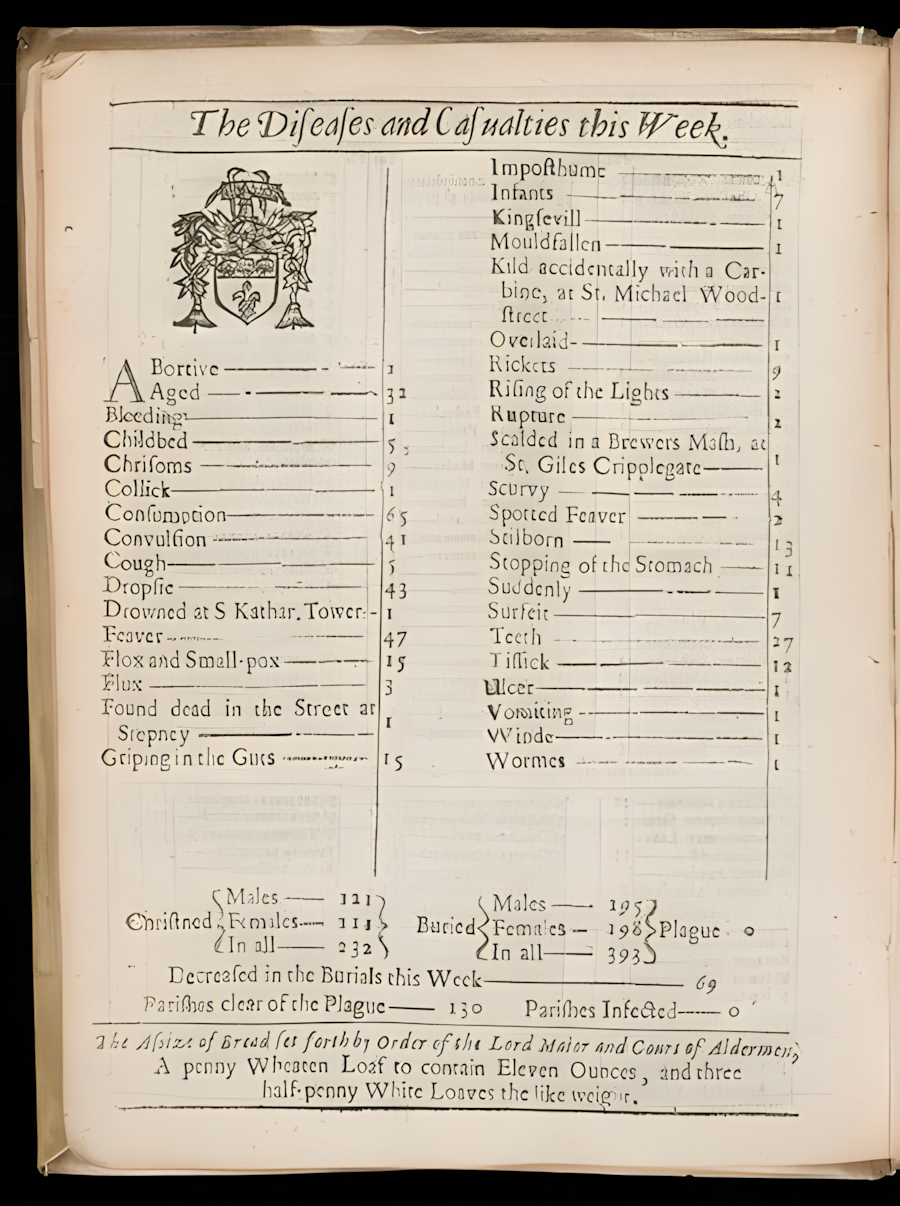 The Diſeaſes and Caſualties this Week.
ABortive 1
Aged 32
Bleeding 1
Childbed 5
Chriſoms 9
Collick 1
Conſumption 65
Convulſion 41
Cough 5
Dropſie 43
Drowned at S Kathar. Tower 1
Feaver 47
Flox and Small-pox 15
Flux 3
Found dead in the Street at
Stepney 1
Griping in the Guts 15
Impoſthume 1
Infants 7
Kingſevill 1
Mouldfallen 1
Kild accidentally with a Car-
bine, at St. Michael Wood- 1
ſtreet
Overlaid 1
Rickets 9
Riſing of the Lights 2
Rupture 2
Scalded in a Brewers Maſh, at
St. Giles Cripplegate 1
Scurvy 4
Spotted Feaver 2
Stilborn 13
Stopping of the Stomach 11
Suddenly 1
Surfeit 7
Teeth 27
Tiſſick 12
Ulcer 1
Vomiting 1
Winde 1
Wormes 1
Chriſtned Males 121 Females 111 In all 232
Buried Males 195 Females 198 In all 393 Plague 0
Decreaſed in the Burials this Week 69
Pariſhes clear of the Plague 130 Pariſhes Infected 0
The Aſsize of Bread ſet forth by Order of the Lord Maior and Court of Aldermen,
A penny Wheaten Loaf to contain Eleven Ounces, and three
half-penny White Loaves the like weight.